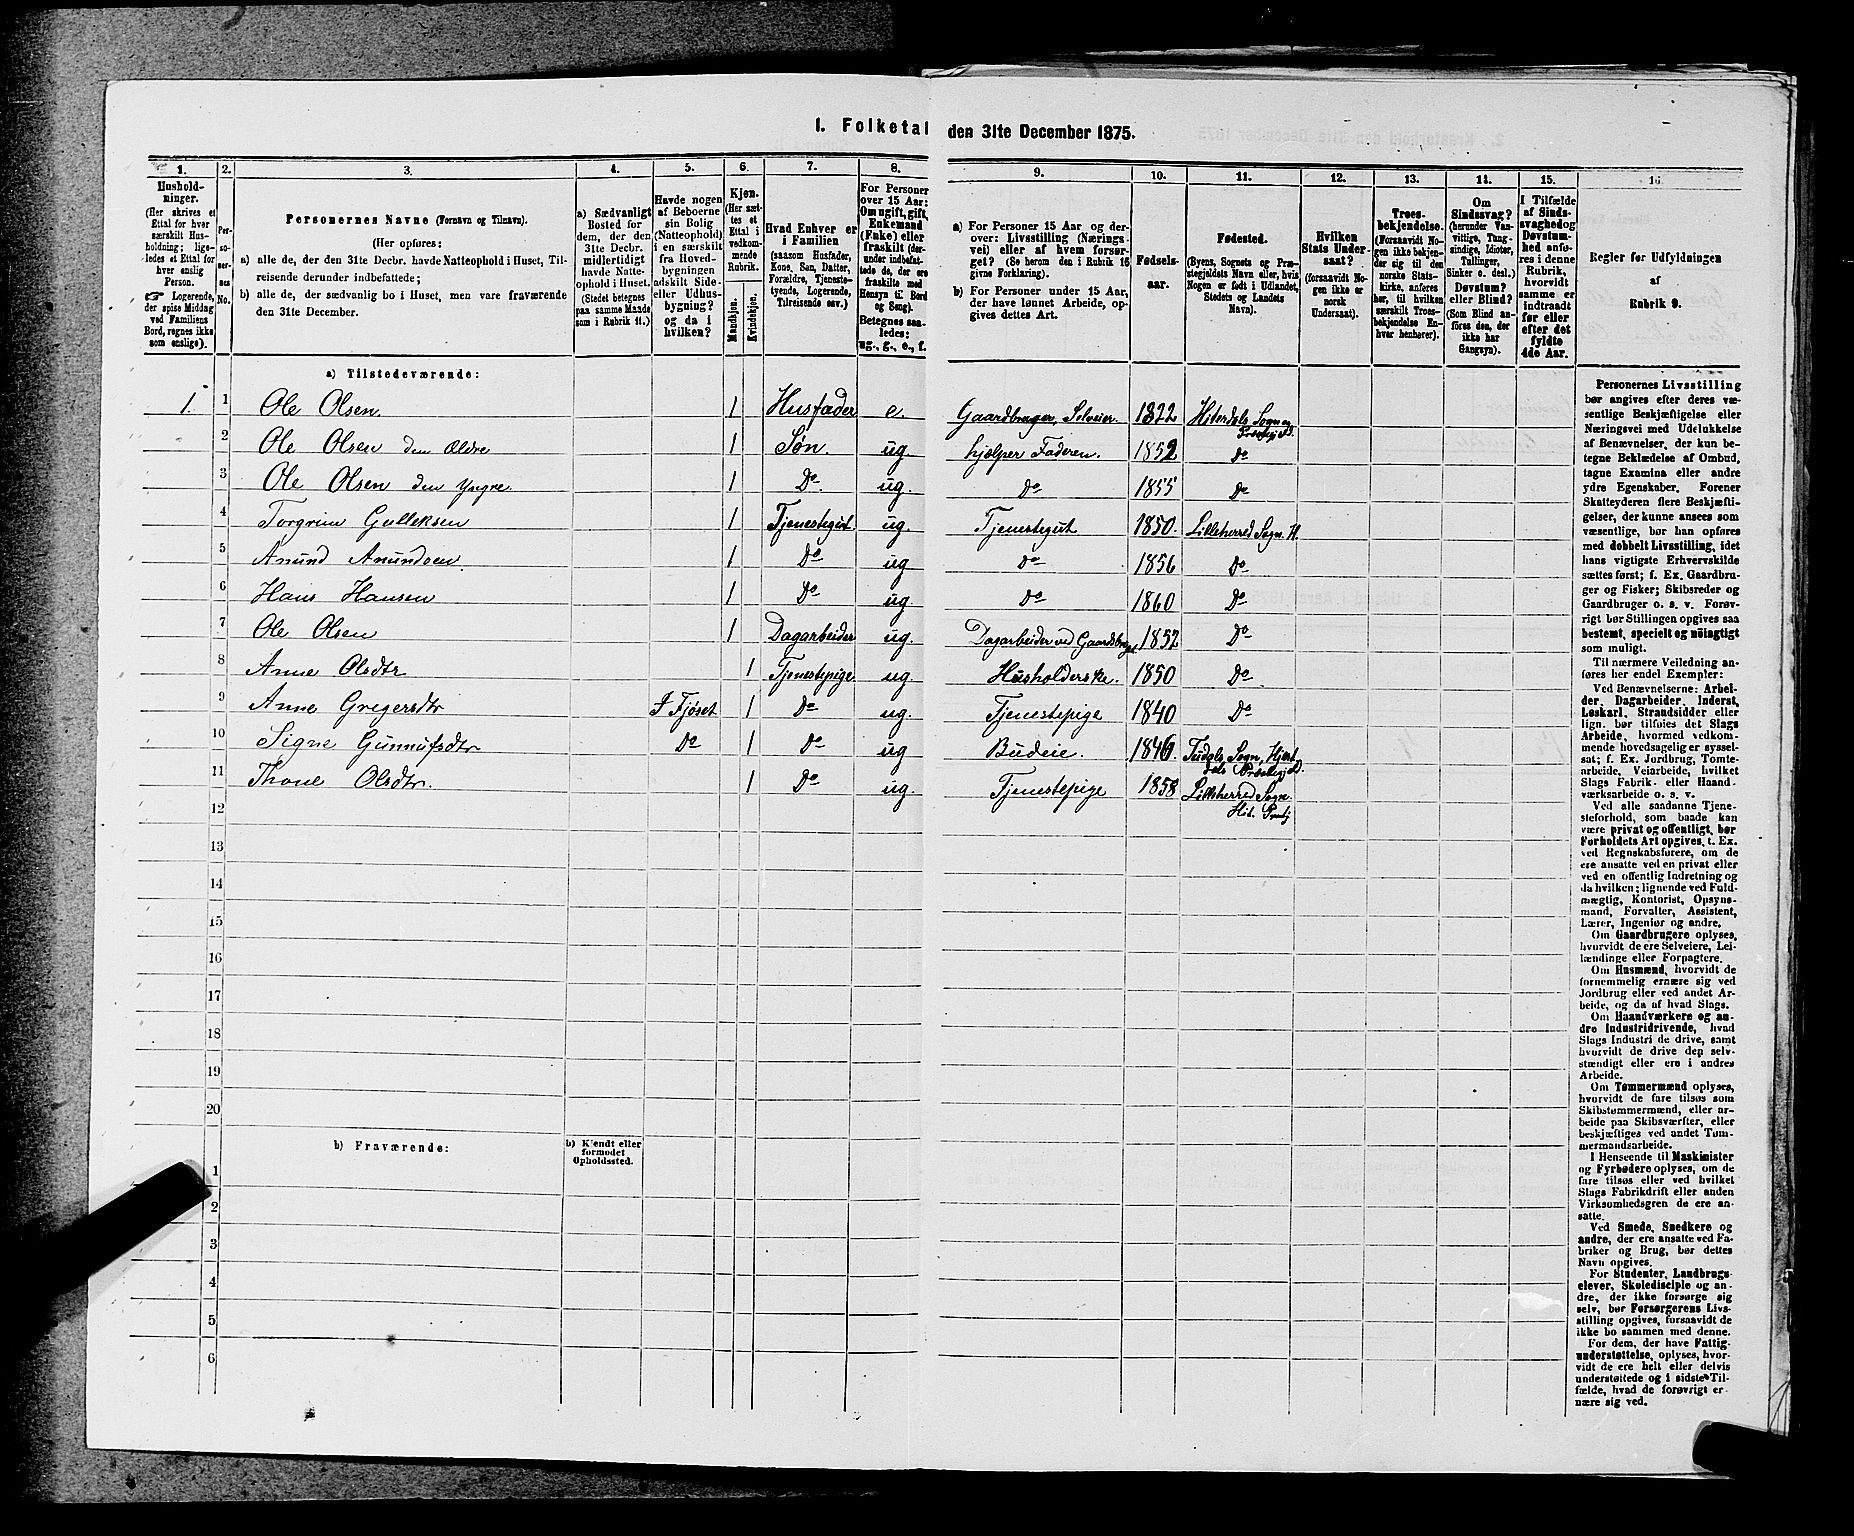 1. Folketal den 31te December 1875.
1.
Hushold-
ninger.
(Her skrives et
Ettal for hver
særskilt Hus-
holdning; lige-
ledes et Ettal for
hver enslig
Person.
Logerende,
der spise Middag
ved Familiens
Bord, regnes ikke
som enslige).
2.
Per-
so-
ner-
nes
No.
3.
Personernes Navne (Fornavn og Tilnavn).
(Her opføres:
a) alle de, der den 31te Decbr. havde Natteophold i Huset, Til-
reisende derunder indbefattede;
b) alle de, der sædvanlig bo i Huset, men vare fraværende
den 31te December.
4.
a) Sædvanligt
Bosted for
dem, der den
31te Decbr.
midlertidigt
havde Natte-
ophold i Huset.
(Stedet betegnes
paa samme Maade
som i Rubrik 11.)
5.
Havde nogen
af Beboerne
sin Bolig
(Natteophold)
i en særskilt
fra Hoved-
bygningen
adskilt Side-
eller Udhus-
bygning?
og da i
hvilken?
6.
Kjøn.
(Her sæt-
tes et
Ettal i
vedkom-
mende
Rubrik.
Mandkjøn.
Kvindekjøn.
7.
Hvad Enhver er
i Familien
(saasom Husfader,
Kone, Søn, Datter,
Forældre, Tjeneste-
tyende, Logerende,
Tilreisende osv.)
8.
For Personer
over 15 Aar:
Om ugift, gift,
Enkemand
(Enke) eller
fraskilt (der-
under indbefat-
tede de, der ere
fraskilte med
Hensyn til Bord
og Seng).
Betegnes saa-
ledes:
ug., g., e., f.
9.
a) For Personer 15 Aar og der-
over: Livsstilling (Nærings-
vei) eller af hvem forsør-
get? (Se herom den i Rubrik 16
givne Forklaring).
b) For Personer under 15 Aar,
der have lønnet Arbeide, op-
gives dettes Art.
10.
Fødsels-
aar.
11.
Fødested.
(Byens, Sognets og Præ-
stegjeldets Navn eller, hvis
Nogen er født i Udlandet,
Stedets og Landets
Navn).
12.
Hvilken
Stats Under-
saat?
(forsaavidt No-
gen ikke er
norsk
Undersaat).
13.
Troes-
bekjendelse.
(Forsaavidt No-
gen ikke bekjen-
der sig til den
norske Stats-
kirke, anføres
her, til hvilken
særskilt Troes-
bekjendelse En-
hver henhører).
14.
Om
Sindssvag?
(herunder Van-
vittige, Tung-
sindige, Idioter,
Tullinger,
Sinker o. desl.)
Døvstum?
eller Blind?
(Som Blind an-
føres den, der
ikke har
Gangsyn).
15.
I Tilfælde
af Sinds-
svaghed og
Døvstum-
hed anfø-
res i denne
Rubrik,
hvorvidt
samme er
indtraadt
før eller
efter det
fyldte
4de Aar.
16.
Regler for Udfyldningen
af
Rubrik 9.
a) Tilstedeværende:
1. 1 Ole Olsen. 1 Husfader e. Gaardbruger, Selveier. 1822 Hiterdals Sogn og Præstegjeld.
2 Ole Olsen den Ældre 1 Søn. ug hjælper Faderen. 1852 Do
3 Ole Olsen den Yngre. 1 Do. ug. Do 1855 Do
4 Torgrim Gulleksen 1 Tjenestegut. ug. Tjenestegut 1850. Lilleherred Sogn. H.
5 Amund Amundsen. 1 Do ug Do 1856 Do
6 Hans Hansen 1 Do ug. Do 1860 Do
7 Ole Olsen 1 Dagarbeider ug. Dagarbeider ved Gaardsbruget. 1852 Do
8 Anne Olsdtr 1 Tjenestepige ug. Husholderske. 1850 Do
9 Anne Gregersdtr I Fjøset 1 Do ug. Tjenestepige 1840 Do
10 Signe Gunnufsdtr Do 1 Do ug Budeie. 1846. Tudals Sogn, Hjertdals Præstegjeld.
11 Thone Olsdtr. 1 Do ug. Tjenestepige 1858 Lilleherred Sogn. Hit. Prestgj
12
13
14
15
16
17
18
19
20
b) Fraværende:
b) Kjendt eller
formodet
Opholdssted.
1
2
3
4
5
6
Personernes Livsstilling
bør angives efter deres væ-
sentlige Beskjæftigelse eller
Næringsvei med Udelukkelse
af Benævnelser, der kun be-
tegne Beklædelse af Ombud,
tagne Examina eller andre
ydre Egenskaber. Forener
Skatteyderen flere Beskjæfti-
gelser, der kunne ansees som
væsentlige, bør han opføres
med dobbelt Livsstilling, idet
hans vigtigste Erhvervskilde
sættes først; f. Ex. Gaardbru-
ger og Fisker; Skibsreder og
Gaardbruger o. s. v. Forøv-
rigt bør Stillingen opgives saa
bestemt, specielt og nöiagtigt
som muligt.
Til nærmere Veiledning an-
føres her endel Exempler:
Ved Benævnelserne: Arbei-
der, Dagarbeider, Inderst,
Løskarl, Strandsidder eller
lign. bør tilføies det Slags
Arbeide, hvormed vedkom-
mende hovedsagelig er syssel-
sat; f. Ex. Jordbrug, Tomte-
arbeide, Veiarbeide, hvilket
Slags Fabrik- eller Haand-
værksarbeide o. s. v.
Ved alle saadanne Tjene-
steforhold, som baade kan
være privat og offentligt, bør
Forholdets Art opgives, t. Ex.
ved Regnskabsførere, om de
ere ansatte ved en privat eller
ved en offentlig Indretning og
da hvilken; lignende ved Fuld-
mægtig, Kontorist, Opsyns-
mand, Forvalter, Assistent,
Lærer, Ingeniør og andre.
Om Gaardbrugere oplyses,
hvorvidt de ere Selveiere, Lei-
lændinge eller Forpagtere.
Om Husmænd, hvorvidt de
fornemmelig ernære sig ved
Jordbrug eller ved andet Ar-
beide, og da af hvad Slags.
Om Haandværkere og an-
dre industridrivende, hvad
Slags Industri de drive, samt
hvorvidt de drive dep selv-
stændigt eller ere i andres
Arbeide.
Om Tømmermænd oplyses,
hvorvidt de fare tilsøs som
Skibstømmermænd, eller ar-
beide paa Skibsværfter, eller
beskjæftiges ved andet Tøm-
mermandsarbeide.
I Henseende til Maskinister
og Fyrbødere oplyses, om de
fare tilsøs eller ved hvilket
Slags Fabrikdrift eller anden
Virksomhedsgren de ere an-
satte.
Ved Smede, Snedkere og
andre, der ere ansatte ved Fa-
briker og Brug, bør dettes
Navn opgives.
For Studenter, Landbrugs-
elever, Skoledisciple og an-
dre, der ikke forsørge sig
selv, bør Forsørgerens Livs-
stilling opgives, forsaavidt de
ikke bo sammen med denne.
For dem, der have Fattig-
understøttelse, oplyses, hvor-
vidt de ere helt eller delvis
understøttede og i sidste Til-
fælde, hvad de forøvrigt er-
nære sig ved.